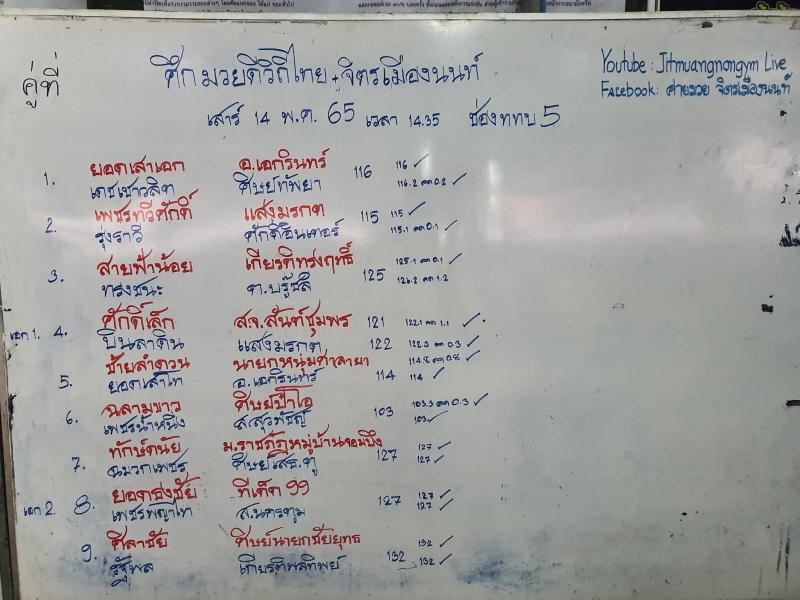 คู่ที่
ศึกมวยดีวิถีไทย + จิตรเมืองนนท์
Youtube : Jitmuangnongym Live
Facebook: ค่ายมวย จิตรเมืองนนท์
เสาร์ 14 พ.ค. 65 เวลา 14.35 ช่องททบ 5
1. ยอดเสาเอก อ.เอกรินทร์ 116 116 ✓
เดชเชาวลิต ศิษย์ทัพยา 116.2 ลด 0.2 ✓
2. เพชรทวีศักดิ์ แสงมรกต 115 115 ✓
รุ่งราวี ศักดิ์อินเตอร์ 115.1 ลด 0.1 ✓
3. สายฟ้าน้อย เกียรติทรงฤทธิ์ 125 125.1 ลด 0.1 ✓
ทรงชนะ ต.บรู๊ซลี 126.2 ลด 1.2 ✓
เอก 1. 4. ศักดิ์เล็ก ส.จ.สันท์ชุมพร 121 122.1 ลด 1.1 ✓
บินลาดิน แสงมรกต 122 122.3 ลด 0.3 ✓
5. ซ้ายลำดวน นายกหนุ่มศาลายา 114.8 ลด 0.8 ✓
ยอดเสาโท อ.เอกรินทร์ 114 114 ✓
6. ฉลามขาว ศิษย์ป๋าไอ 103 103.3 ลด 0.3 ✓
เพชรน้ำหนึ่ง ส.สุวพัชญ์ 103 ✓
7. ทักษ์ดนัย ม.ราชภัฏหมู่บ้านจอมบึง 127 127 ✓
ฉมวกเพชร 127 ✓
เอก 2. 8. ยอดธงชัย ทีเด็ด 99 127 127 ✓
เพชรพญาไท ส.นครทุม 127 ✓
9. ศิลาชัย ศิษย์นายกชัยยุทธ 132 132 ✓
รัฐพล เกียรติพลทิพย์ 132 ✓